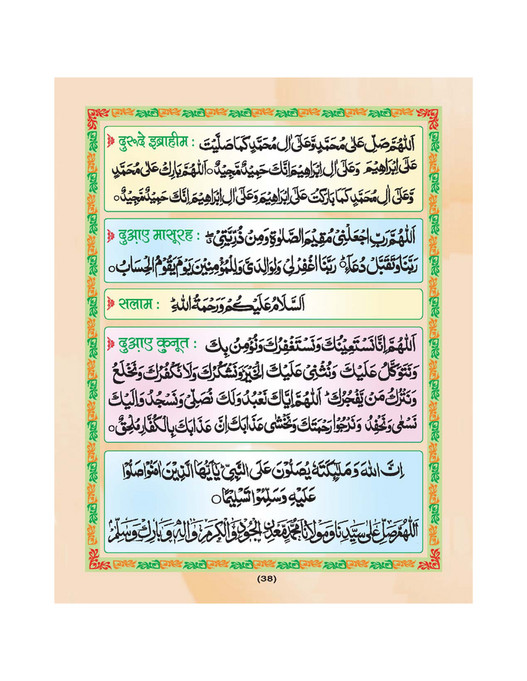 दुरूदे इब्राहीम : اَللّٰهُمَّ صَلِّ عَلٰى مُحَمَّدٍ وَّعَلٰٓى اٰلِ مُحَمَّدٍ كَمَا صَلَّيْتَ
عَلٰٓى اِبْرَاهِيْمَ وَعَلٰٓى اٰلِ اِبْرَاهِيْمَ اِنَّكَ حَمِيْدٌ مَّجِيْدٌ ○ اَللّٰهُمَّ بَارِكْ عَلٰى مُحَمَّدٍ
وَّعَلٰٓى اٰلِ مُحَمَّدٍ كَمَا بَارَكْتَ عَلٰٓى اِبْرَاهِيْمَ وَعَلٰٓى اٰلِ اِبْرَاهِيْمَ اِنَّكَ حَمِيْدٌ مَّجِيْدٌ ○
दुआए मासूरह : اَللّٰهُمَّ رَبِّ اجْعَلْنِيْ مُقِيْمَ الصَّلٰوةِ وَمِنْ ذُرِّيَّتِيْ
رَبَّنَا وَتَقَبَّلْ دُعَآءِ رَبَّنَا اغْفِرْلِيْ وَلِوَالِدَيَّ وَلِلْمُؤْمِنِيْنَ يَوْمَ يَقُوْمُ الْحِسَابُ ○
सलाम : اَلسَّلَامُ عَلَيْكُمْ وَرَحْمَةُ اللّٰهِ
दुआए कुनूत : اَللّٰهُمَّ اِنَّا نَسْتَعِيْنُكَ وَنَسْتَغْفِرُكَ وَنُؤْمِنُ بِكَ
وَنَتَوَكَّلُ عَلَيْكَ وَنُثْنِيْ عَلَيْكَ الْخَيْرَ وَنَشْكُرُكَ وَلَا نَكْفُرُكَ وَنَخْلَعُ
وَنَتْرُكُ مَنْ يَّفْجُرُكَ اَللّٰهُمَّ اِيَّاكَ نَعْبُدُ وَلَكَ نُصَلِّيْ وَنَسْجُدُ وَاِلَيْكَ
نَسْعٰى وَنَحْفِدُ وَنَرْجُوْا رَحْمَتَكَ وَنَخْشٰى عَذَابَكَ اِنَّ عَذَابَكَ بِالْكُفَّارِ مُلْحِقٌ ○
اِنَّ اللّٰهَ وَمَلٰٓئِكَتَهٗ يُصَلُّوْنَ عَلَى النَّبِيِّ يٰٓاَيُّهَا الَّذِيْنَ اٰمَنُوْا صَلُّوْا
عَلَيْهِ وَسَلِّمُوْا تَسْلِيْمًا ○
اَللّٰهُمَّ صَلِّ عَلٰى سَيِّدِنَا وَمَوْلَانَا مُحَمَّدٍ مَّعْدِنِ الْجُوْدِ وَالْكَرَمِ وَاٰلِهٖ وَبَارِكْ وَسَلِّمْ
(38)